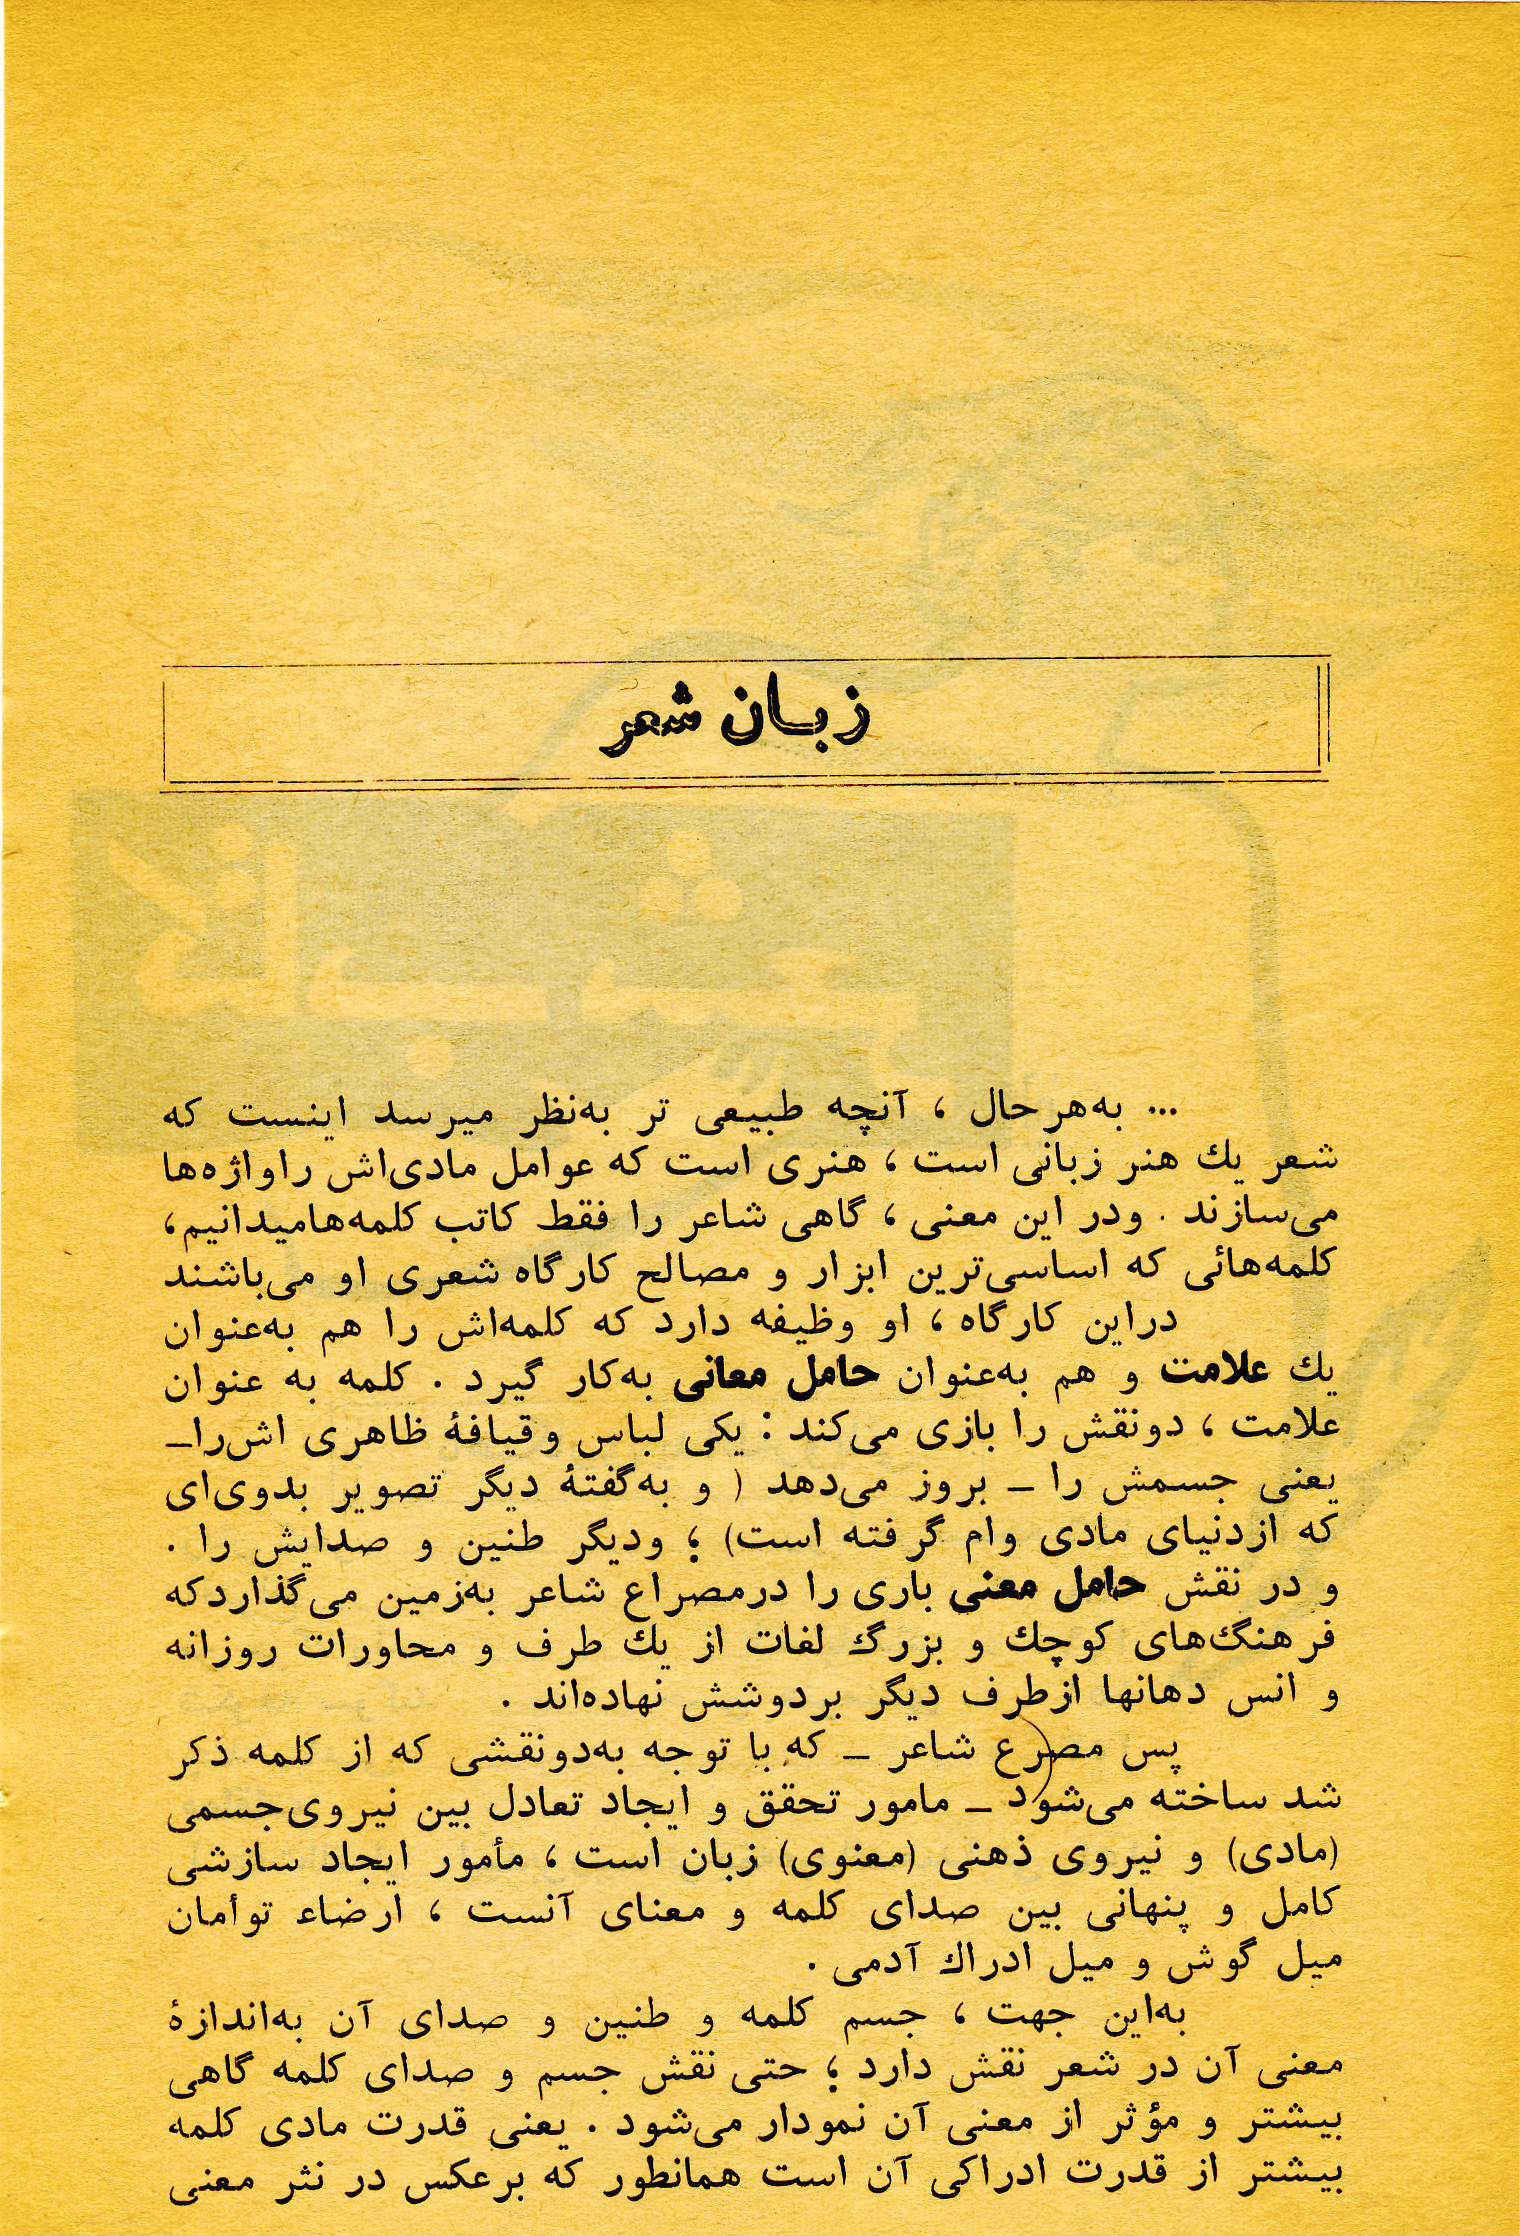 زبان شعر
... به‌هر حال ، آنچه طبیعی تر به‌نظر میرسد اینست که
شعر یك هنر زبانی است ، هنری است که عوامل مادی‌اش را واژه‌ها
می‌سازند . ودر این معنی ، گاهی شاعر را فقط کاتب کلمه‌هامیدانیم،
کلمه‌هائی که اساسی‌ترین ابزار و مصالح کارگاه شعری او می‌باشند
دراین کارگاه ، او وظیفه دارد که کلمه‌اش را هم به‌عنوان
یك علامت و هم به‌عنوان حامل معانی به‌کار گیرد . کلمه به عنوان
علامت ، دونقش را بازی می‌کند : یکی لباس وقیافهٔ ظاهری اش‌را_
یعنی جسمش را _ بروز می‌دهد ( و به‌گفتهٔ دیگر تصویر بدوی‌ای
که ازدنیای مادی وام گرفته است) ؛ ودیگر طنین و صدایش را .
و در نقش حامل معنی باری را درمصراع شاعر به‌زمین می‌گذاردکه
فرهنگ‌های کوچك و بزرگ لغات از یك طرف و محاورات روزانه
و انس دهانها ازطرف دیگر بردوشش نهاده‌اند .
پس مصرع شاعر _ که با توجه به‌دونقشی که از کلمه ذکر
شد ساخته می‌شود _ مامور تحقق و ایجاد تعادل بین نیروی‌جسمی
(مادی) و نیروی ذهنی (معنوی) زبان است ، مأمور ایجاد سازشی
کامل و پنهانی بین صدای کلمه و معنای آنست ، ارضاء توأمان
میل گوش و میل ادراك آدمی .
به‌این جهت ، جسم کلمه و طنین و صدای آن به‌اندازهٔ
معنی آن در شعر نقش دارد ؛ حتی نقش جسم و صدای کلمه گاهی
بیشتر و مؤثر از معنی آن نمودار می‌شود . یعنی قدرت مادی کلمه
بیشتر از قدرت ادراکی آن است همانطور که برعکس در نثر معنی